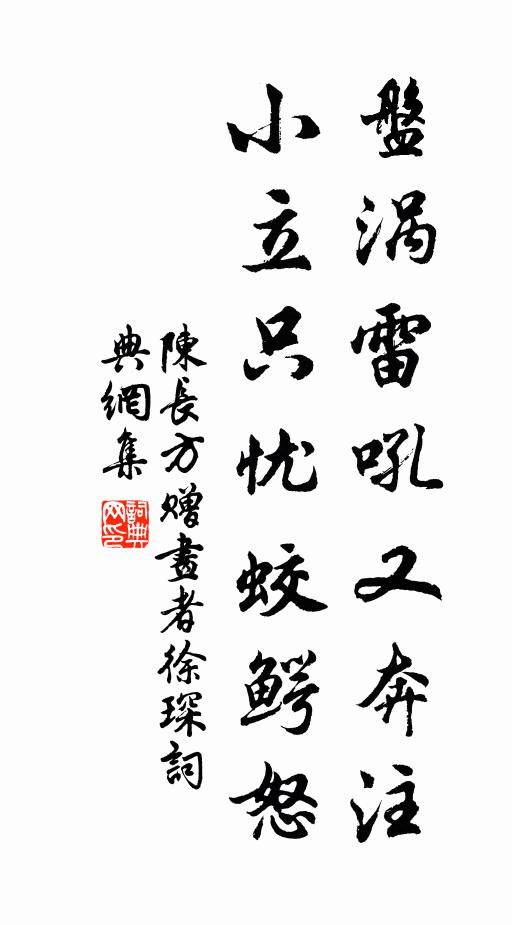 盤涡雷吼又奔注
小立只忧蛟鳄怒
陳長方赠畫者徐琛詞
典網集
詞典网印